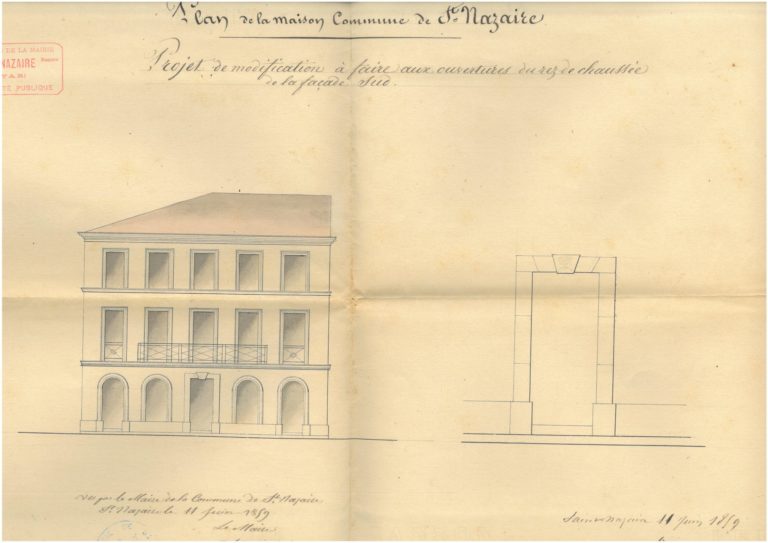 Plan de la Maison Commune de St. Nazaire
Projet de modification à faire aux ouvertures du rez de chaussée
de la façade Sud.
DE LA MAIRIE
NAZAIRE
VAR
PUBLIQUE
Vu par le Maire de la Commune de St. Nazaire
St. Nazaire le 11 juin 1859
Le Maire
Saint-Nazaire 11 juin 1859